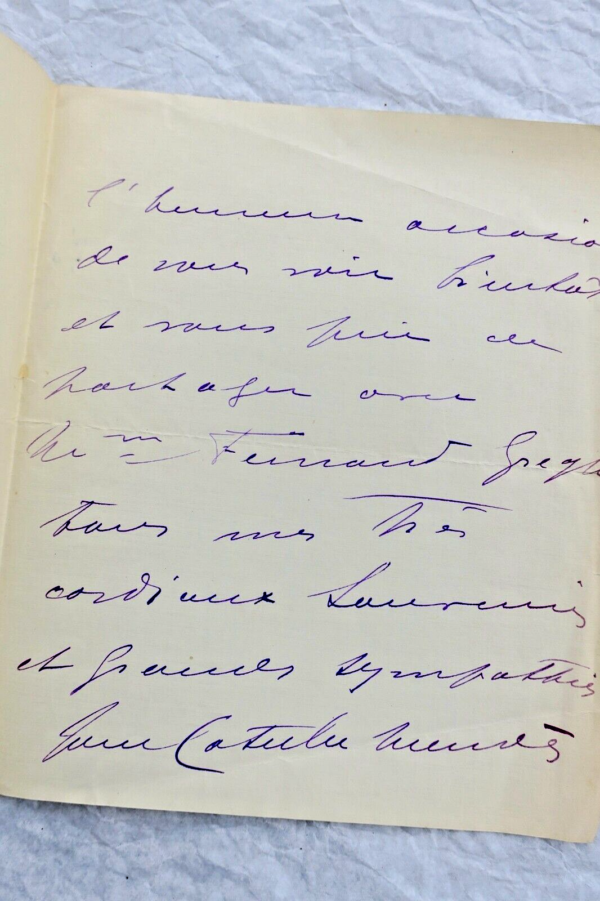 l'heureuse occasio
de vous voir bientôt
et vous prie de
partager avec
Mme Fernand Gregh
tous mes très
cordiaux souvenirs
et grandes sympathies
Jane Catulle Mendès